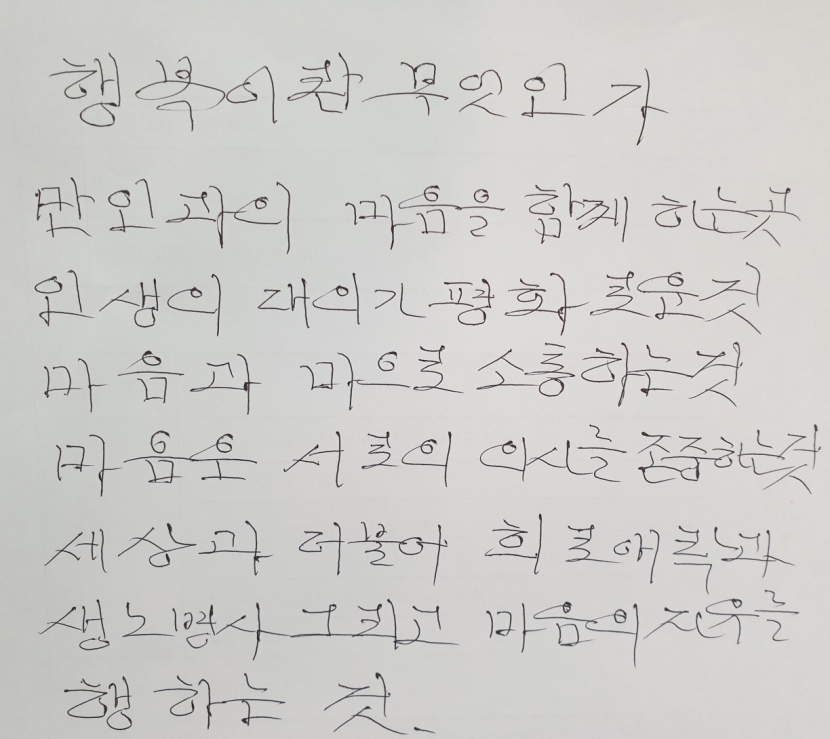 행복이란 무엇인가
만인과의 마음을 함께 하는것
인생의 대의가 평화로운것
마음과 마으로 소통하는것
마음으 서로의 의사를 존중하는것
세상과 더불어 희로애락과
생노병사 그리고 마음의 자유를
행하는 것.